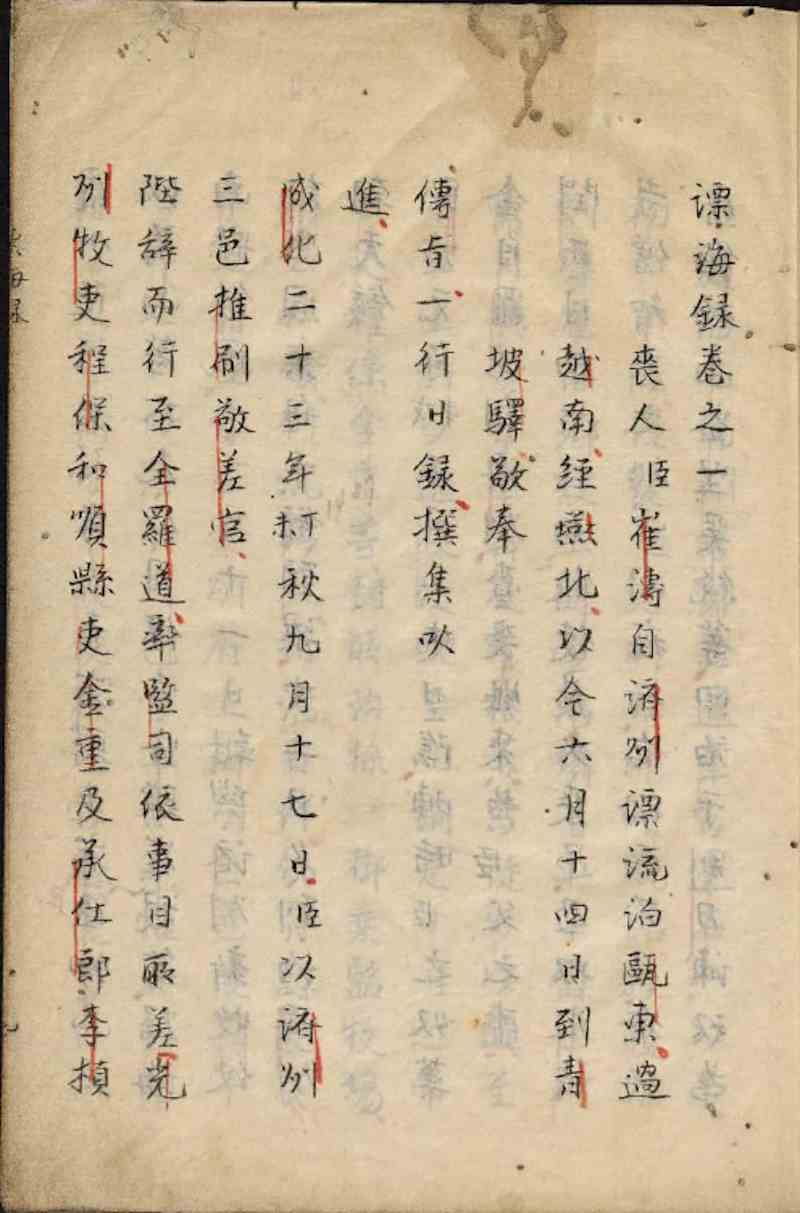 漂海録巻之一
喪人臣崔溥自済州漂流泊甌東過
越南経燕北以今六月十四日到青
坡驛敬奉
傳旨一行日録撰集以
進
成化二十三年丁未秋九月十七日臣以済州
三邑推刷敬差官
陛辞而行至全羅道率監司依事目所差光
州牧吏程保和順縣吏金重及承仕郎李楨